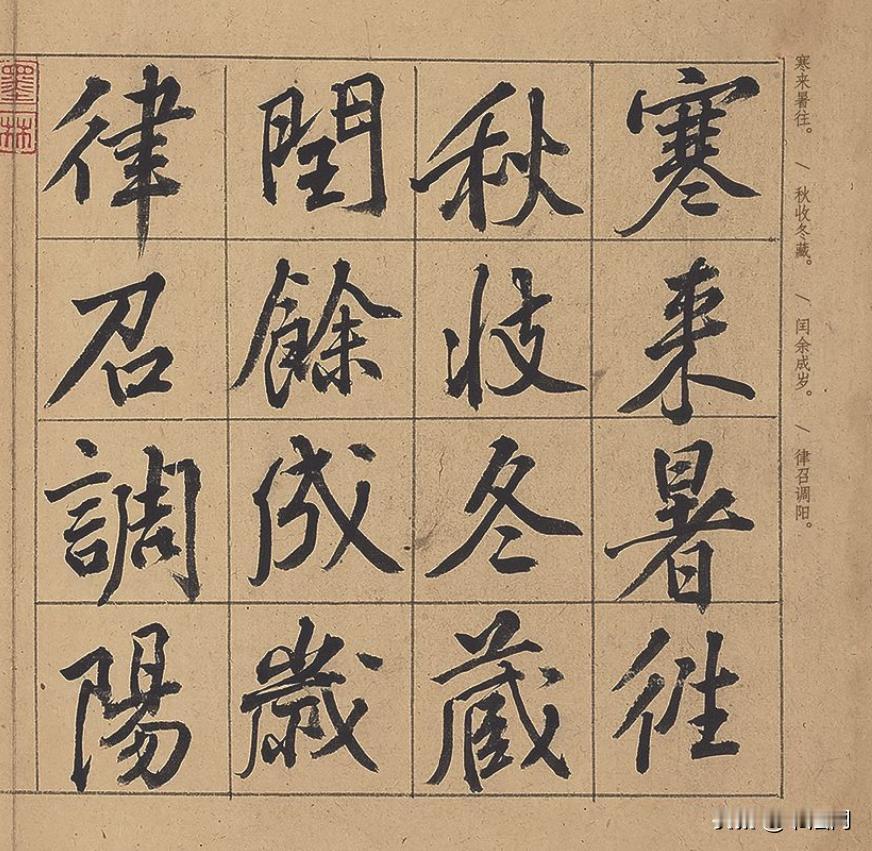 寒来暑往。／秋收冬藏。／闰余成岁。／律召调阳。
寒來暑往
秋收冬藏
閏餘成歲
律召調陽
墨林